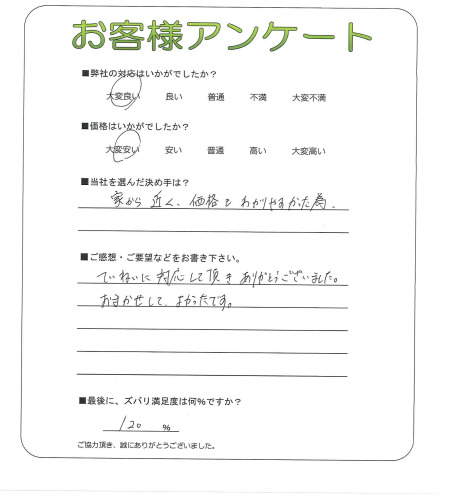 お客様アンケート
■弊社の対応はいかがでしたか？
大変良い 良い 普通 不満 大変不満
■価格はいかがでしたか？
大変安い 安い 普通 高い 大変高い
■当社を選んだ決め手は？
家から近く、価格もわかりやすかった為.
■ご感想・ご要望などをお書き下さい。
ていねいに対応して頂きありがとうございました。
おまかせして、よかったです。
■最後に、ズバリ満足度は何%ですか？
120 %
ご協力頂き、誠にありがとうございました。